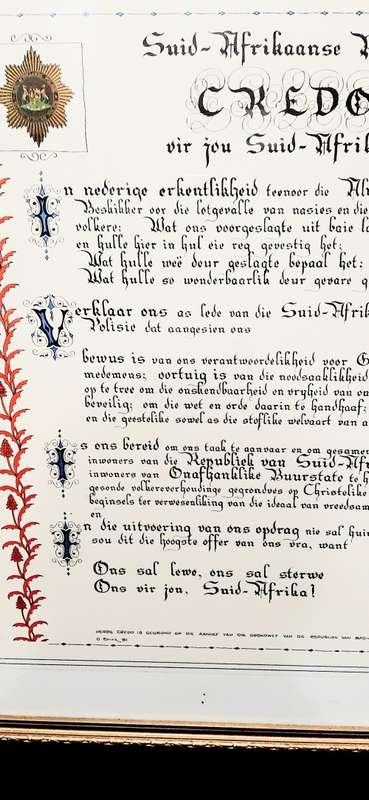 Suid-Afrikaanse
CREDO
vir jou Suid-Afrik
In nederige erkentlikheid teenoor die Al
Beskikker oor die lotgevalle van nasies en die
volkere: Wat ons voorgeslagte uit baie la
en hulle hier in hul eie reg gevestig het;
Wat hulle weë deur geslagte bepaal het;
Wat hulle so wonderbaarlik deur gevare g
Verklaar ons as lede van die Suid-Afrik
Polisie dat aangesien ons
bewus is van ons verantwoordelikheid voor G
medemens; oortuig is van die noodsaaklikheid
op te tree om die onskendbaarheid en vryheid van on
beveilig; om die wet en orde daarin te handhaaf;
en die geestelike sowel as die stoflike welvaart van a
Is ons bereid om ons taak te aanvaar en om gesamen
inwoners van die Republiek van Suid-Afri
inwoners van Onafhanklike Buurstate te h
gesonde volkereverhoudinge gegrondves op Christelike
beginsels ter verwesenliking van die ideaal van vreedsam
en
In die uitvoering van ons opdrag nie sal hui
sou dit die hoogste offer van ons vra, want
Ons sal lewe, ons sal sterwe
Ons vir jou, Suid-Afrika!
HIERDIE CREDO IS GEGROND OP DIE AANHEF VAN DIE GRONDWET VAN DIE REPUBLIEK VAN SUID-